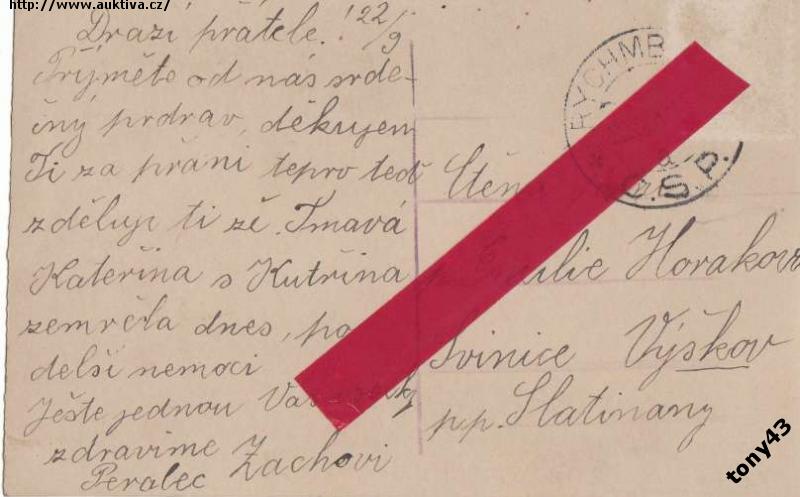 http://www.auktiva.cz/
Drazí přátele! 22/9
Přijměte od nás srde-
čný prdrav, děkujem
Ti za přání tepro teď
zděluji ti žě Tmavá
Kateřina s Kutřina
zemrěla dnes, po
delší nemoci
Ještě jednou Vás
zdravíme
Peralec Zachovi
RYCHMB
Č.S.P.
Ctěná
Horakova
Svinice Výškov
pp. Slatinany
tony43